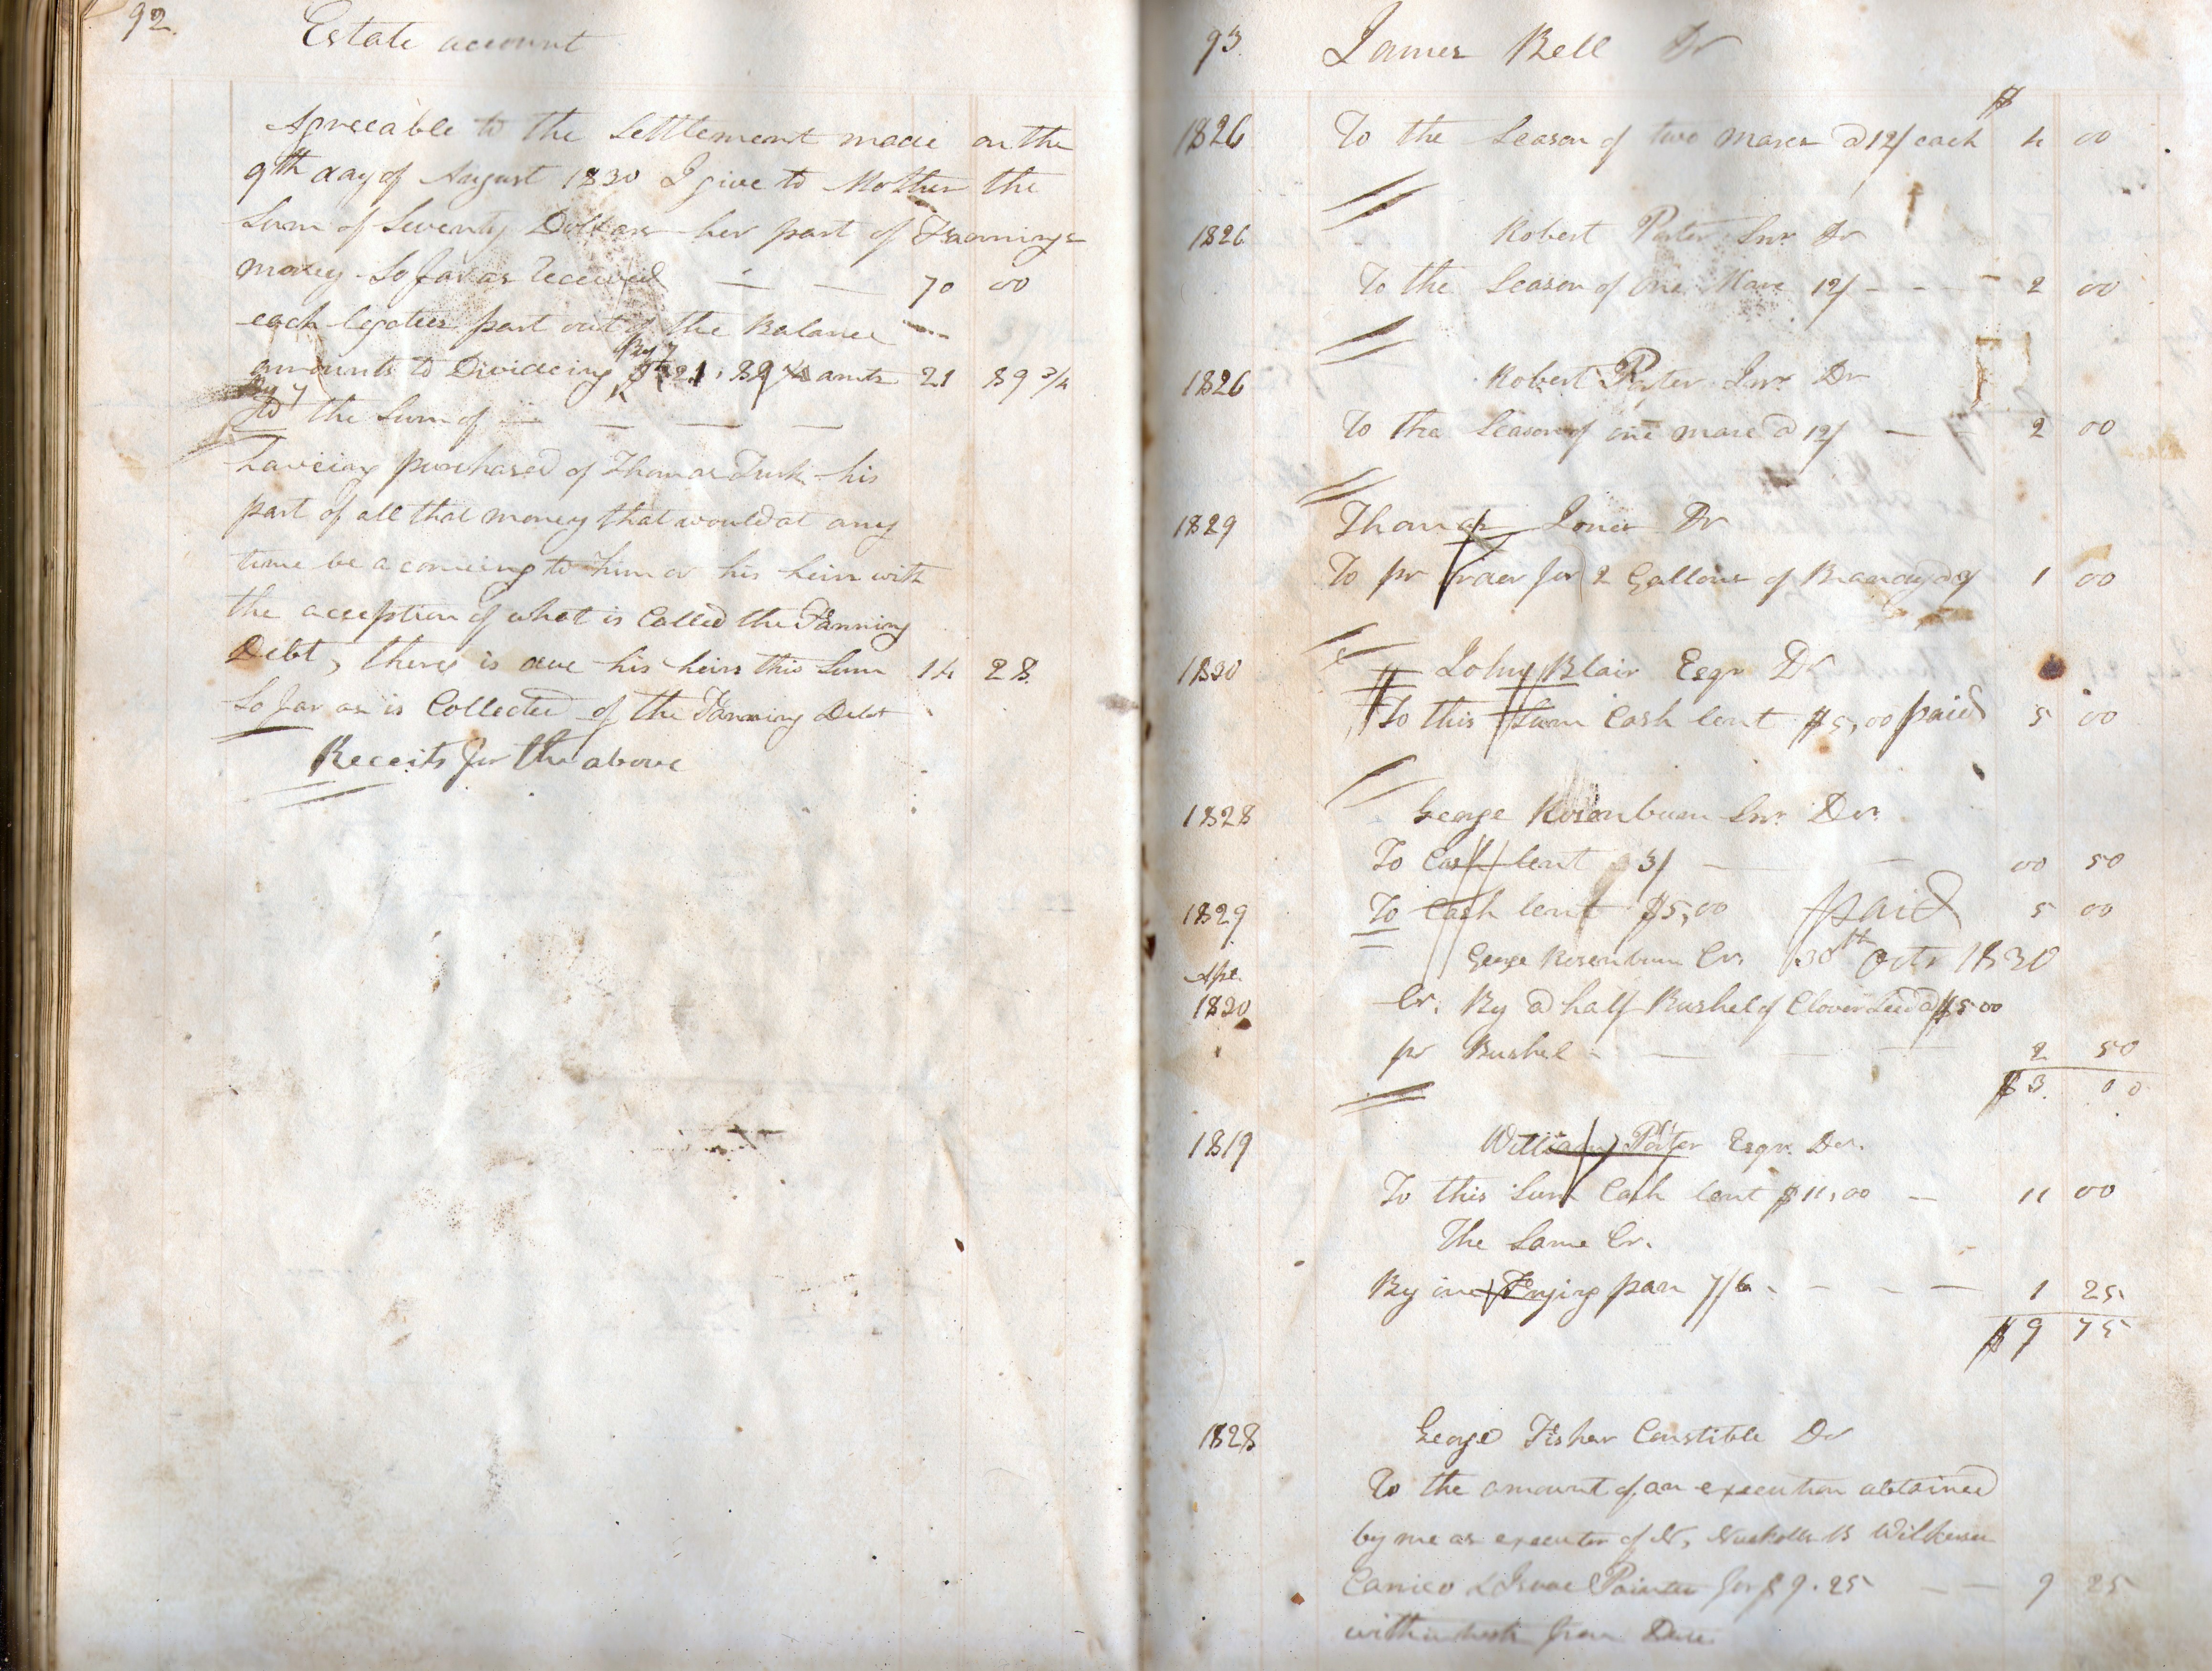 92.
Estate account
Agreeable to the Settlement made on the
9th day of August 1830 I give to Mother the
Sum of Seventy Dollars her part of Fannings
money So far as received — — 70 00
each legatees part out of the Balance
amounts to Divideing By 7 89 amts 21 89 3/4
By 7
to the Sum of — — — —
haveing purchased of Thomas Turk his
part of all that money that would at any
time be a comeing to him or his heirs with
the acception of what is Called the Fanning
Debt, there is due his heirs this Sum 14 28
So far as is Collected of the Fanning Debt
Receits for the above
93.
James Bell Dr
$
1826 To the Season of two mares @ 12/ each 4 00
1826 Robert Porter Snr Dr
To the Season of One Mare 12/ - - - - 2 00
1826 Robert Porter Jnr Dr
To the Season of one mare @ 12/ — - 2 00
1829 Thomas Jones Dr
To pr order for 2 Gallons of Brandy @ 3/ 1 00
1830 John Blair Esqr Dr
To this Sum Cash lent $5,00 paid 5 00
1828 George Rosenbaum Snr. Dr.
To Cash lent 3/ — — 00 50
1829 To Cash lent $5,00 paid 5 00
George Rosenbaum Cr. 30th Octr 1830
Apr.
1830 Cr. By a half Bushel of Clover Seed @ $5 00
pr Bushel - — — — 2 50
$3. 00
1819 William Porter Esqr. Dr.
To this Sum Cash lent $11,00 — 11 00
The Same Cr.
By one Frying pan 7/6 - - - — 1 25
$9 75
1828 George Fisher Constible Dr
To the amount of an execution obtained
by me as executor of N, Nuckolls vs Wilkerson
& Isaac Painter for $9.25 — — 9 25
with from Date